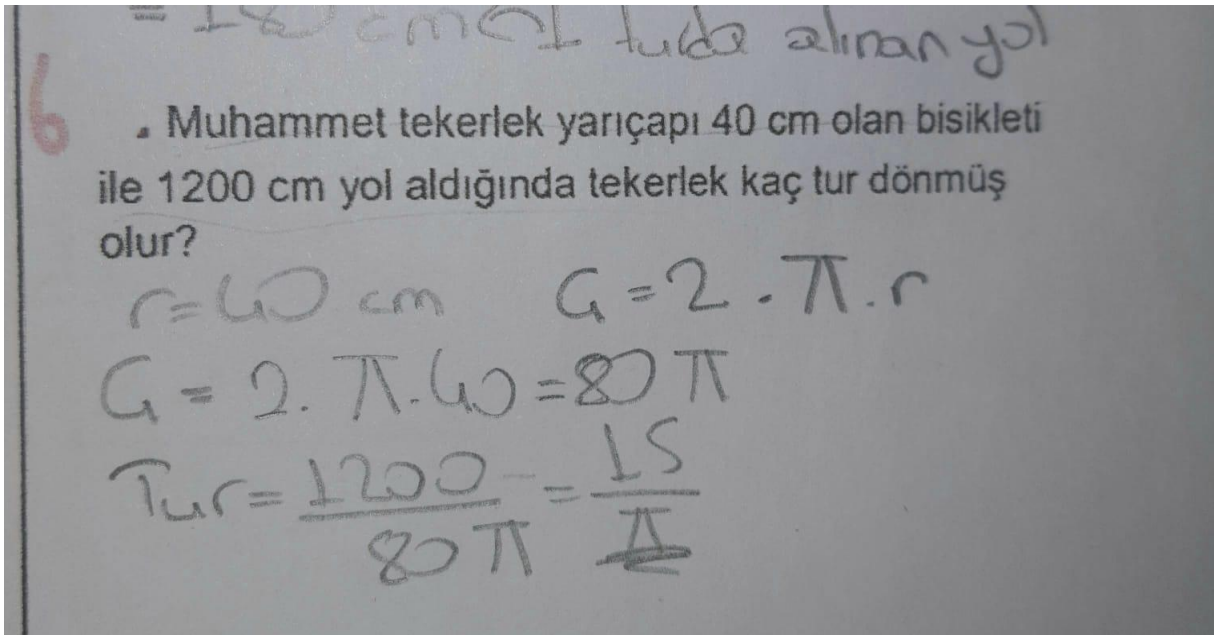 = 180 cm (1 tuda alınan yol
6
. Muhammet tekerlek yarıçapı 40 cm olan bisikleti
ile 1200 cm yol aldığında tekerlek kaç tur dönmüş
olur?
r=40 cm Ç=2.π.r
Ç=2.π.40=80π
Tur=1200/80π=15/π